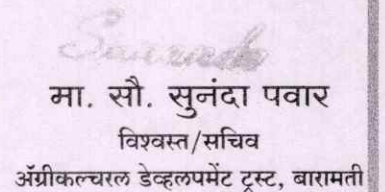 मा. सौ. सुनंदा पवार
विश्वस्त/सचिव
ॲग्रीकल्चरल डेव्हलपमेंट ट्रस्ट, बारामती